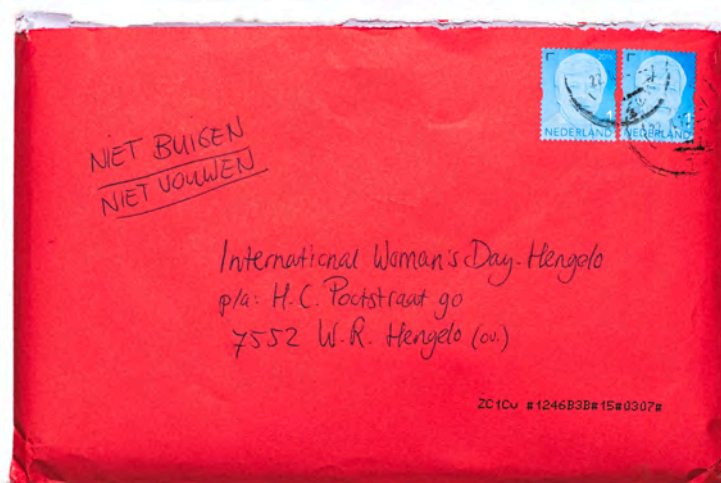 NIET BUIGEN
NIET VOUWEN
NEDERLAND 1
NEDERLAND 1
International Woman's Day-Hengelo
p/a: H.C. Poctstraat 90
7552 W.R. Hengelo (ov.)
ZC1Cu #1246B3B#15#0307#